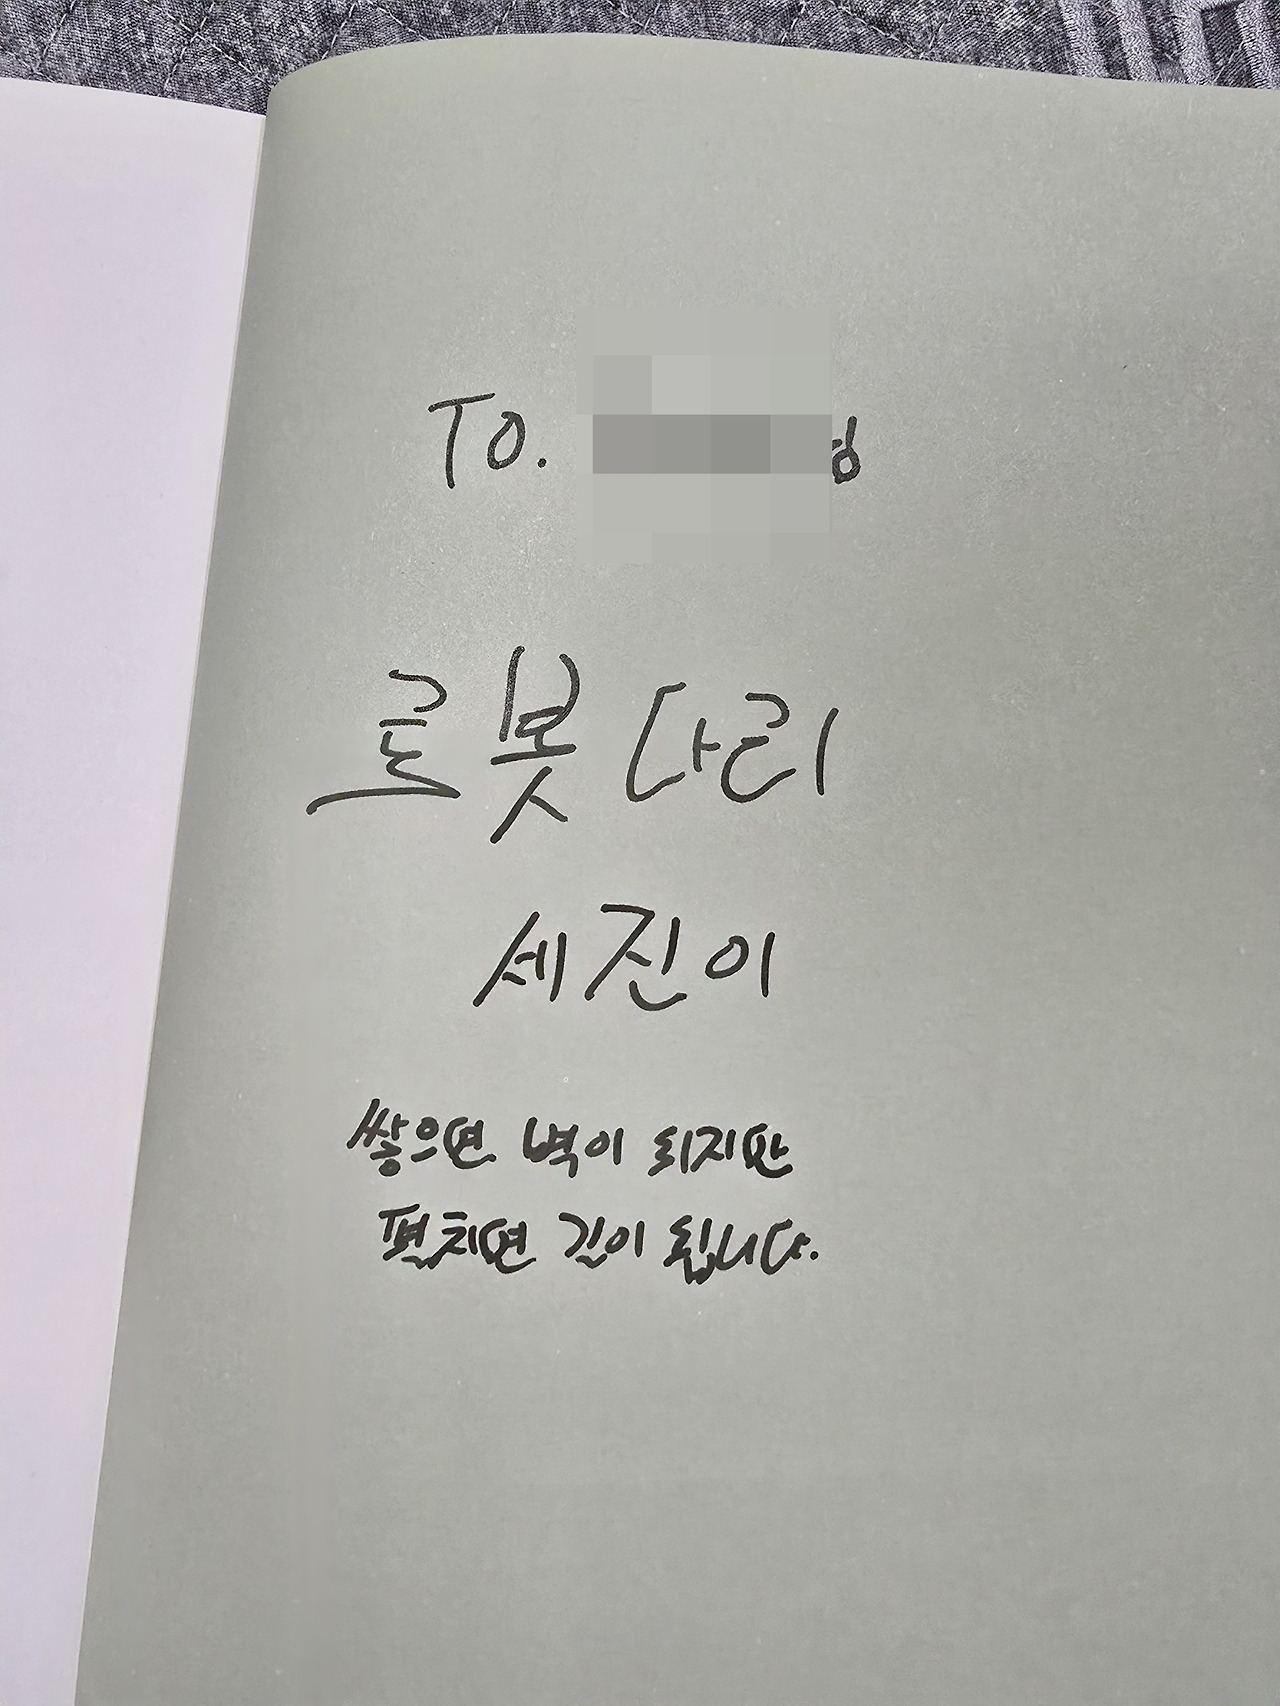 To.
로봇다리
세진이
쌓으면 벽이 되지만
펼치면 길이 됩니다.